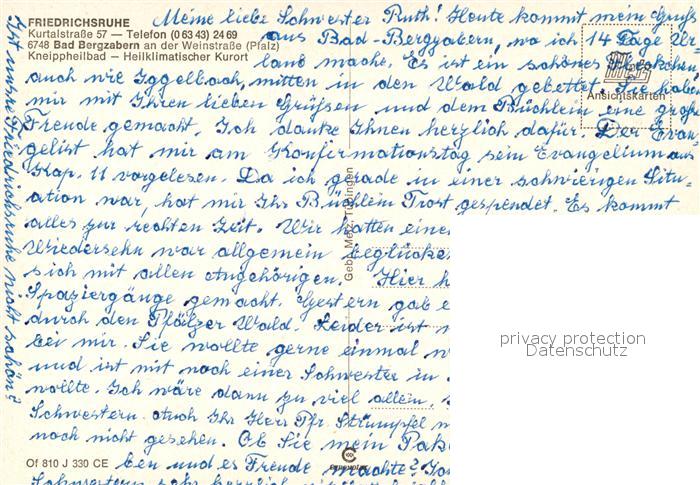 FRIEDRICHSRUHE
Kurtalstraße 57 — Telefon (0 63 43) 24 69
6748 Bad Bergzabern an der Weinstraße (Pfalz)
Kneippheilbad — Heilklimatischer Kurort
Meine liebe Schwester Ruth! Heute kommt mein Gruß
aus Bad-Bergzabern, wo ich 14 Tage Ur
laub mache. Es ist ein schönes Fleckchen,
auch wie Iggelbach, mitten in den Wald gebettet. Sie haben
mir mit Ihren lieben Grüßen und dem Büchlein eine große
Freude gemacht. Ich danke Ihnen herzlich dafür. Der Evan-
gelist hat mir am Konfirmationstag sein Evangelium aus
Kap. 11 vorgelesen. Da ich gerade in einer schwierigen Situ-
ation war, hat mir Ihr Büchlein Trost gespendet. Es kommt
alles zur rechten Zeit. Wir hatten eine
Wiedersehn war allgemein beglücke
sich mit allen Angehörigen. Hier h
Spaziergänge gemacht. Gestern gab e
durch den Pfälzer Wald. Leider ist
bei mir. Sie wollte gerne einmal
und ist mit noch einer Schwester in
wollte. Ich wäre dann zu viel allein,
Schwestern. Auch Ihr Herr Pfr Strümpfel
noch nicht gesehen. Ob Sie mein Pak
ben und es Freude machte?
Schwestern sehr herzlich
Ist unsre Friedrichsruhe nicht schön?
Gebr. Metz, Tübingen
Metz
Ansichtskarten
Of 810 J 330 CE
privacy protection
Datenschutz